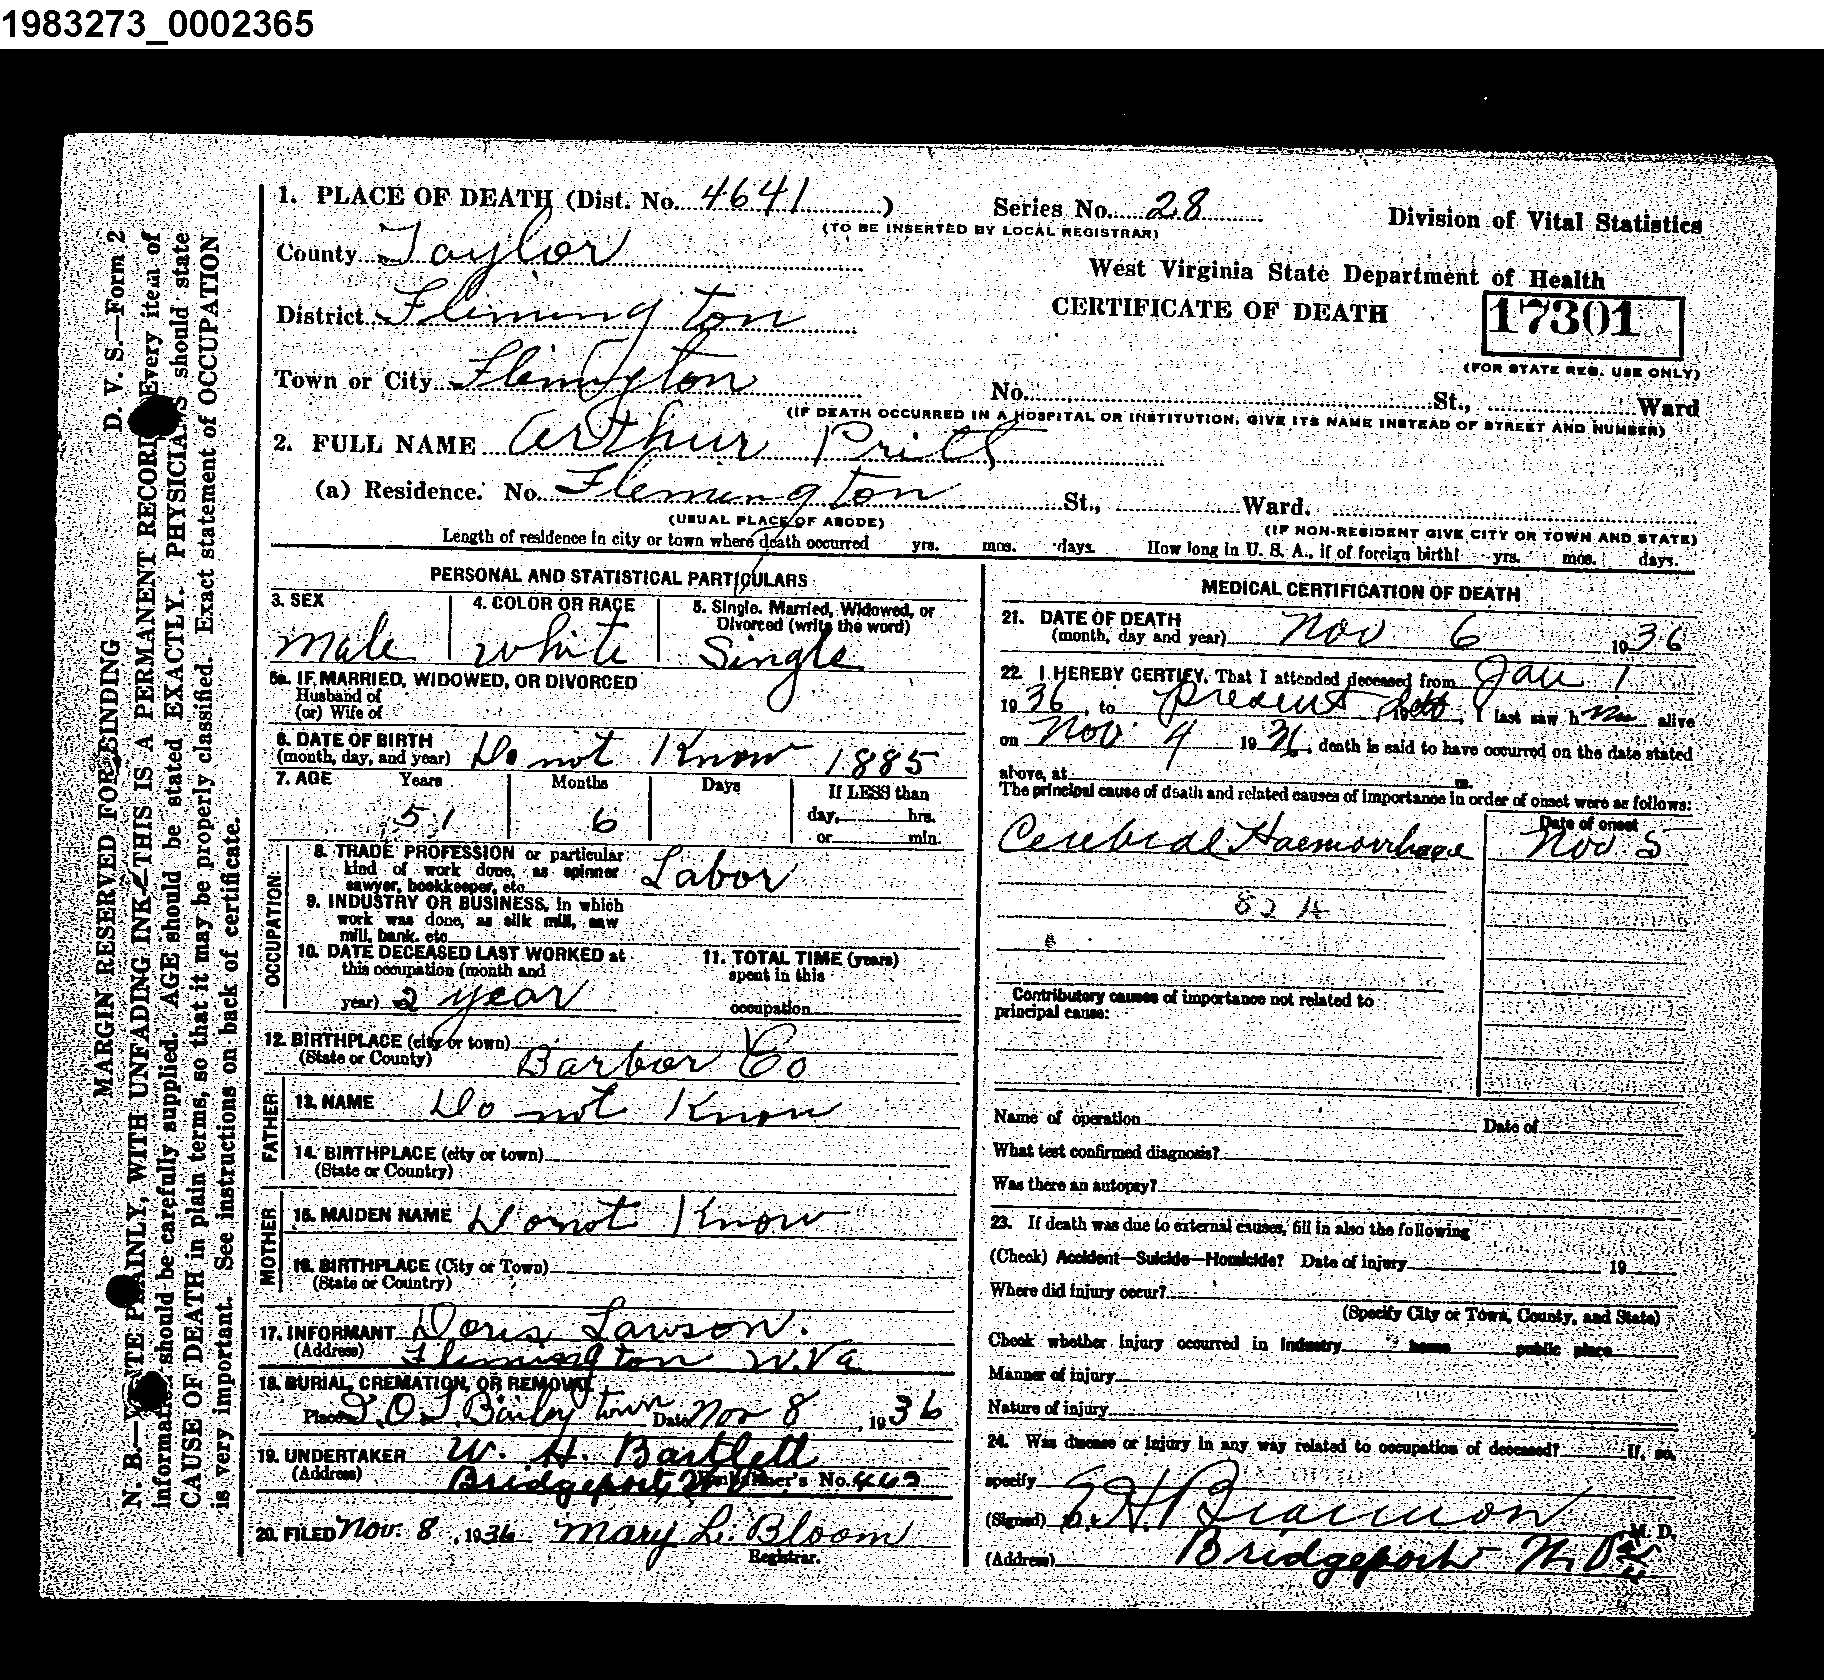 1983273_0002365
D. V. S.—Form 2
MARGIN RESERVED FOR BINDING
N. B.—WRITE PLAINLY, WITH UNFADING INK—THIS IS A PERMANENT RECORD. Every item of
information should be carefully supplied. AGE should be stated EXACTLY. PHYSICIANS should state
CAUSE OF DEATH in plain terms, so that it may be properly classified. Exact statement of OCCUPATION
is very important. See instructions on back of certificate.
1. PLACE OF DEATH (Dist. No. 4641 )
Series No. 28
(TO BE INSERTED BY LOCAL REGISTRAR)
Division of Vital Statistics
County Taylor
West Virginia State Department of Health
District Flemington
CERTIFICATE OF DEATH
17301
(FOR STATE REG. USE ONLY)
Town or City Flemington
No. St., Ward
(IF DEATH OCCURRED IN A HOSPITAL OR INSTITUTION, GIVE ITS NAME INSTEAD OF STREET AND NUMBER)
2. FULL NAME Arthur
(a) Residence. No. Flemington St., Ward.
(USUAL PLACE OF ABODE)
(IF NON-RESIDENT GIVE CITY OR TOWN AND STATE)
Length of residence in city or town where death occurred yrs. mos. days. How long in U. S. A., if of foreign birth? yrs. mos. days.
PERSONAL AND STATISTICAL PARTICULARS
3. SEX
male
4. COLOR OR RACE
white
5. Single. Married, Widowed, or
Divorced (write the word)
Single
5a. IF MARRIED, WIDOWED, OR DIVORCED
Husband of
(or) Wife of
6. DATE OF BIRTH
(month, day, and year) Do not Know 1885
7. AGE Years Months Days If LESS than
51 6 day, hrs.
or min.
OCCUPATION
8. TRADE PROFESSION or particular
kind of work done, as spinner
sawyer, bookkeeper, etc. Labor
9. INDUSTRY OR BUSINESS, in which
work was done, as silk mill, saw
mill, bank, etc
10. DATE DECEASED LAST WORKED at
this occupation (month and
year) 2 year
11. TOTAL TIME (years)
spent in this
occupation
12. BIRTHPLACE (city or town)
(State or County) Barbor Co
FATHER
13. NAME Do not Know
14. BIRTHPLACE (city or town)
(State or Country)
MOTHER
15. MAIDEN NAME Do not Know
16. BIRTHPLACE (City or Town)
(State or Country)
17. INFORMANT Doris Lawson.
(Address) Flemington W.Va
18. BURIAL, CREMATION, OR REMOVAL
Place I.O.T. Bailey town Date Nov 8, 1936
19. UNDERTAKER W. H. Bartlett
(Address) Bridgeport No. 462
20. FILED Nov. 8, 1936 Mary L. Bloom
Registrar.
MEDICAL CERTIFICATION OF DEATH
21. DATE OF DEATH
(month, day and year) Nov 6 1936
22. I HEREBY CERTIFY, That I attended deceased from Jan 1
1936, to present, I last saw h alive
on Nov 4 1936, death is said to have occurred on the date stated
above, at m.
The principal cause of death and related causes of importance in order of onset were as follows:
Date of onset
Cerebral Haemorrhage Nov. 5
82 A
Contributory causes of importance not related to
principal cause:
Name of operation Date of
What test confirmed diagnosis?
Was there an autopsy?
23. If death was due to external causes, fill in also the following
(Check) Accident—Suicide—Homicide? Date of injury 19
Where did injury occur?
(Specify City or Town, County, and State)
Check whether injury occurred in industry home public place
Manner of injury
Nature of injury
24. Was disease or injury in any way related to occupation of deceased? If, so,
specify
(Signed) M. D.
(Address) Bridgeport